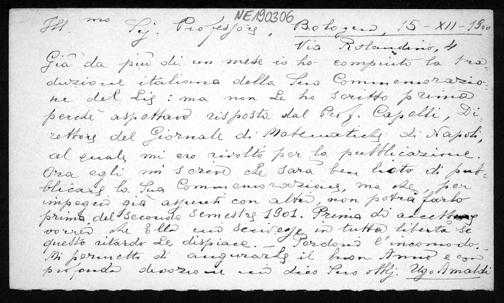 NE190306
Ill.mo Sig. Professore, Bologna, 15-XII-1900
Via Rolandino, 4
Già da più di un mese io ho compiuto la tra-
duzione italiana della Sua Commemorazio-
ne del Lie: ma non Le ho scritto prima
perchè aspettavo risposta dal Prof. Capelli, Di-
rettore del Giornale di Matematiche di Napoli,
al quale mi ero rivolto per la pubblicazione.
Ora egli mi scrive che sarà ben lieto di pub-
blicare la Sua Commemorazione, ma che, per
impegni già assunti con altri, non potrà farlo
prima del secondo semestre 1901. Prima di accettare
vorrei che Ella mi scrivesse in tutta libertà se
questo ritardo Le dispiace. - Perdoni l'incomodo.
Mi permetto di augurarLe il buon Anno e con
profonda devozione mi dico Suo Obbl. Ugo Amaldi